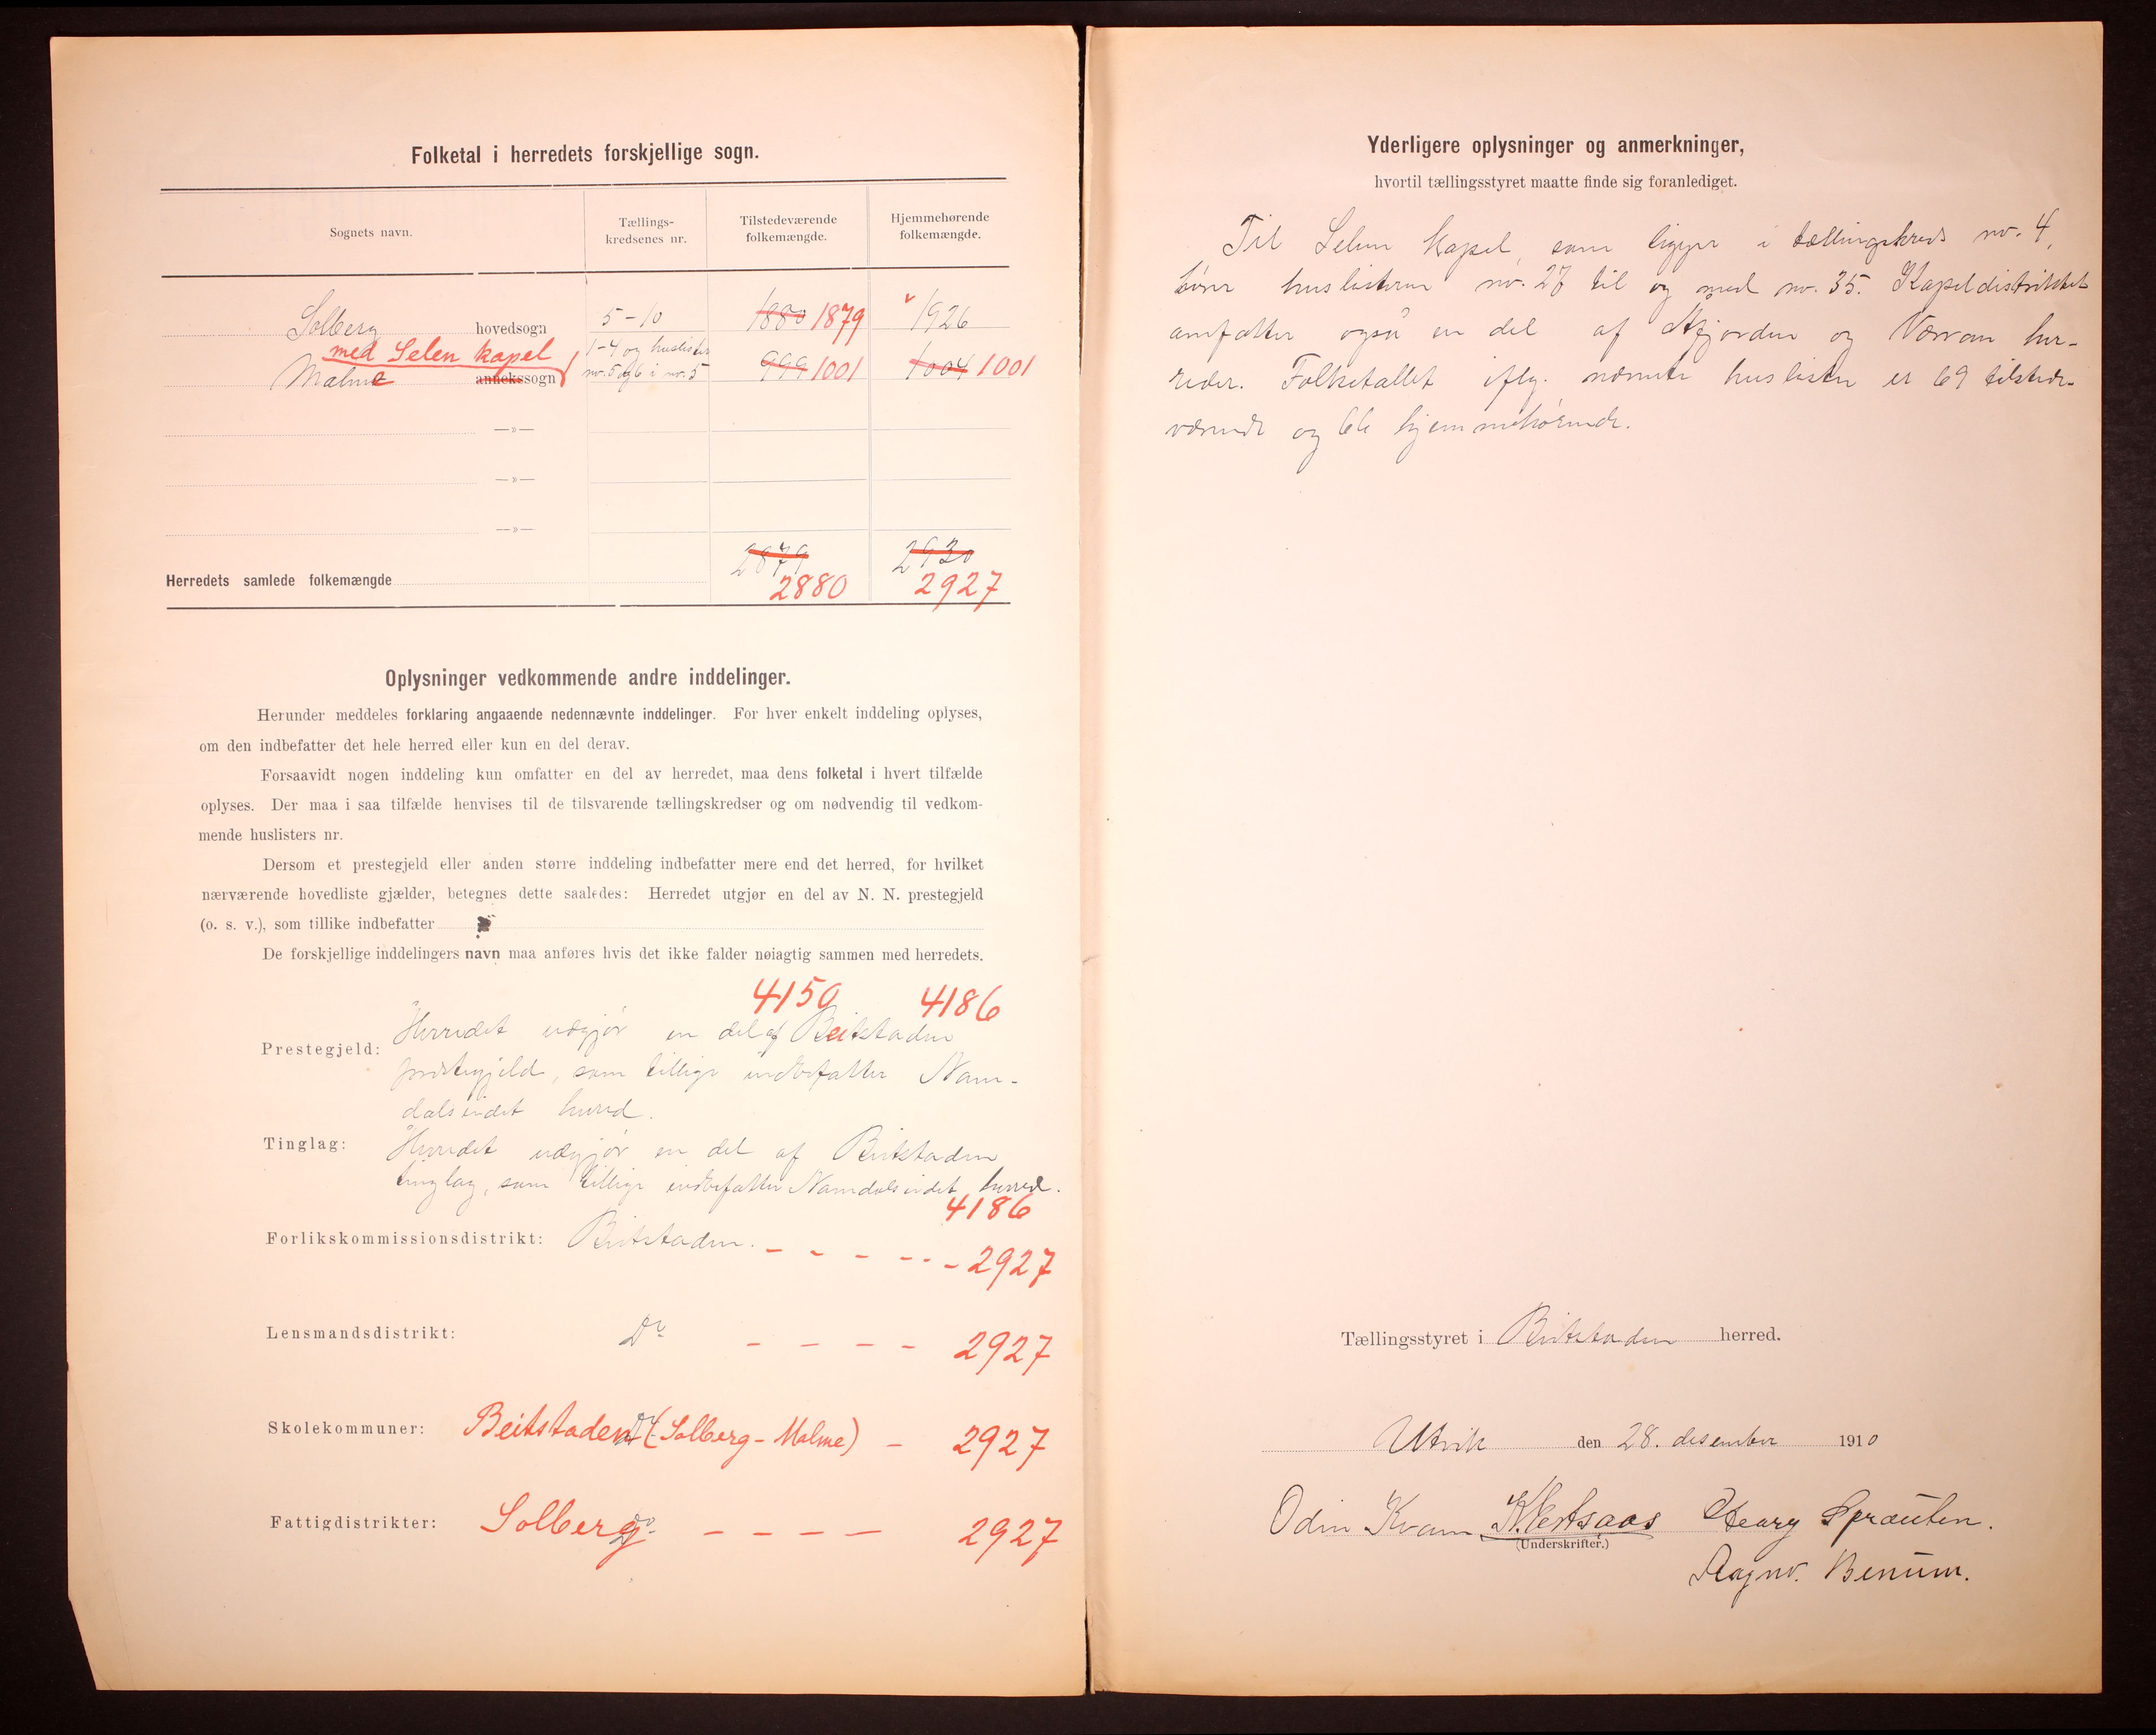 Folketal i herredets forskjellige sogn.
Sognets navn.
Tællings-
kredsenes nr.
Tilstedeværende
folkemængde.
Hjemmehørende
folkemængde.
Solberg hovedsogn 5-10 1880 1879 1926
med Selen kapel 1-4 og huslister
Malme annekssogn nr. 5 og 6 i nr. 5 999 1001 1004 1001
—»—
—»—
—»—
2879 2930
Herredets samlede folkemængde 2880 2927
Oplysninger vedkommende andre inddelinger.
Herunder meddeles forklaring angaaende nedennævnte inddelinger. For hver enkelt inddeling oplyses,
om den indbefatter det hele herred eller kun en del derav.
Forsaavidt nogen inddeling kun omfatter en del av herredet, maa dens folketal i hvert tilfælde
oplyses. Der maa i saa tilfælde henvises til de tilsvarende tællingskredser og om nødvendig til vedkom-
mende huslisters nr.
Dersom et prestegjeld eller anden større inddeling indbefatter mere end det herred, for hvilket
nærværende hovedliste gjælder, betegnes dette saaledes: Herredet utgjør en del av N. N. prestegjeld
(o. s. v.), som tillike indbefatter
De forskjellige inddelingers navn maa anføres hvis det ikke falder nøiagtig sammen med herredets.
4150 4186
Prestegjeld: Herredet udgjør en del af Beitstaden
prestegjeld, som tillige indbefatter Nam-
dalseidet herred.
Tinglag: Herredet udgjør en del af Beitstaden
tinglag, som tillige indbefatter Namdalseidet herred.
4186
Forlikskommissionsdistrikt: Beitstaden. - - - - - - 2927
Lensmandsdistrikt: Do - - - - 2927
Skolekommuner: Beitstaden (Solberg - Malme) - 2927
Fattigdistrikter: Solberg Do - - - - 2927
Yderligere oplysninger og anmerkninger,
hvortil tællingsstyret maatte finde sig foranlediget.
Til Selen kapel, som ligger i tællingskreds nr. 4,
hører huslisterne nr. 27 til og med nr. 35. Kapeldistriktet
omfatter også en del af Åfjorden og Værran her-
reder. Folketallet iflg. nævnte huslister er 69 tilstede-
værende og 66 hjemmehørende.
Tællingsstyret i Beitstaden herred.
Utvik den 28. desember 1910
Odin Kvam K. Vestsaas Georg Sprauten.
(Underskrifter.)
Ragnv. Benum.